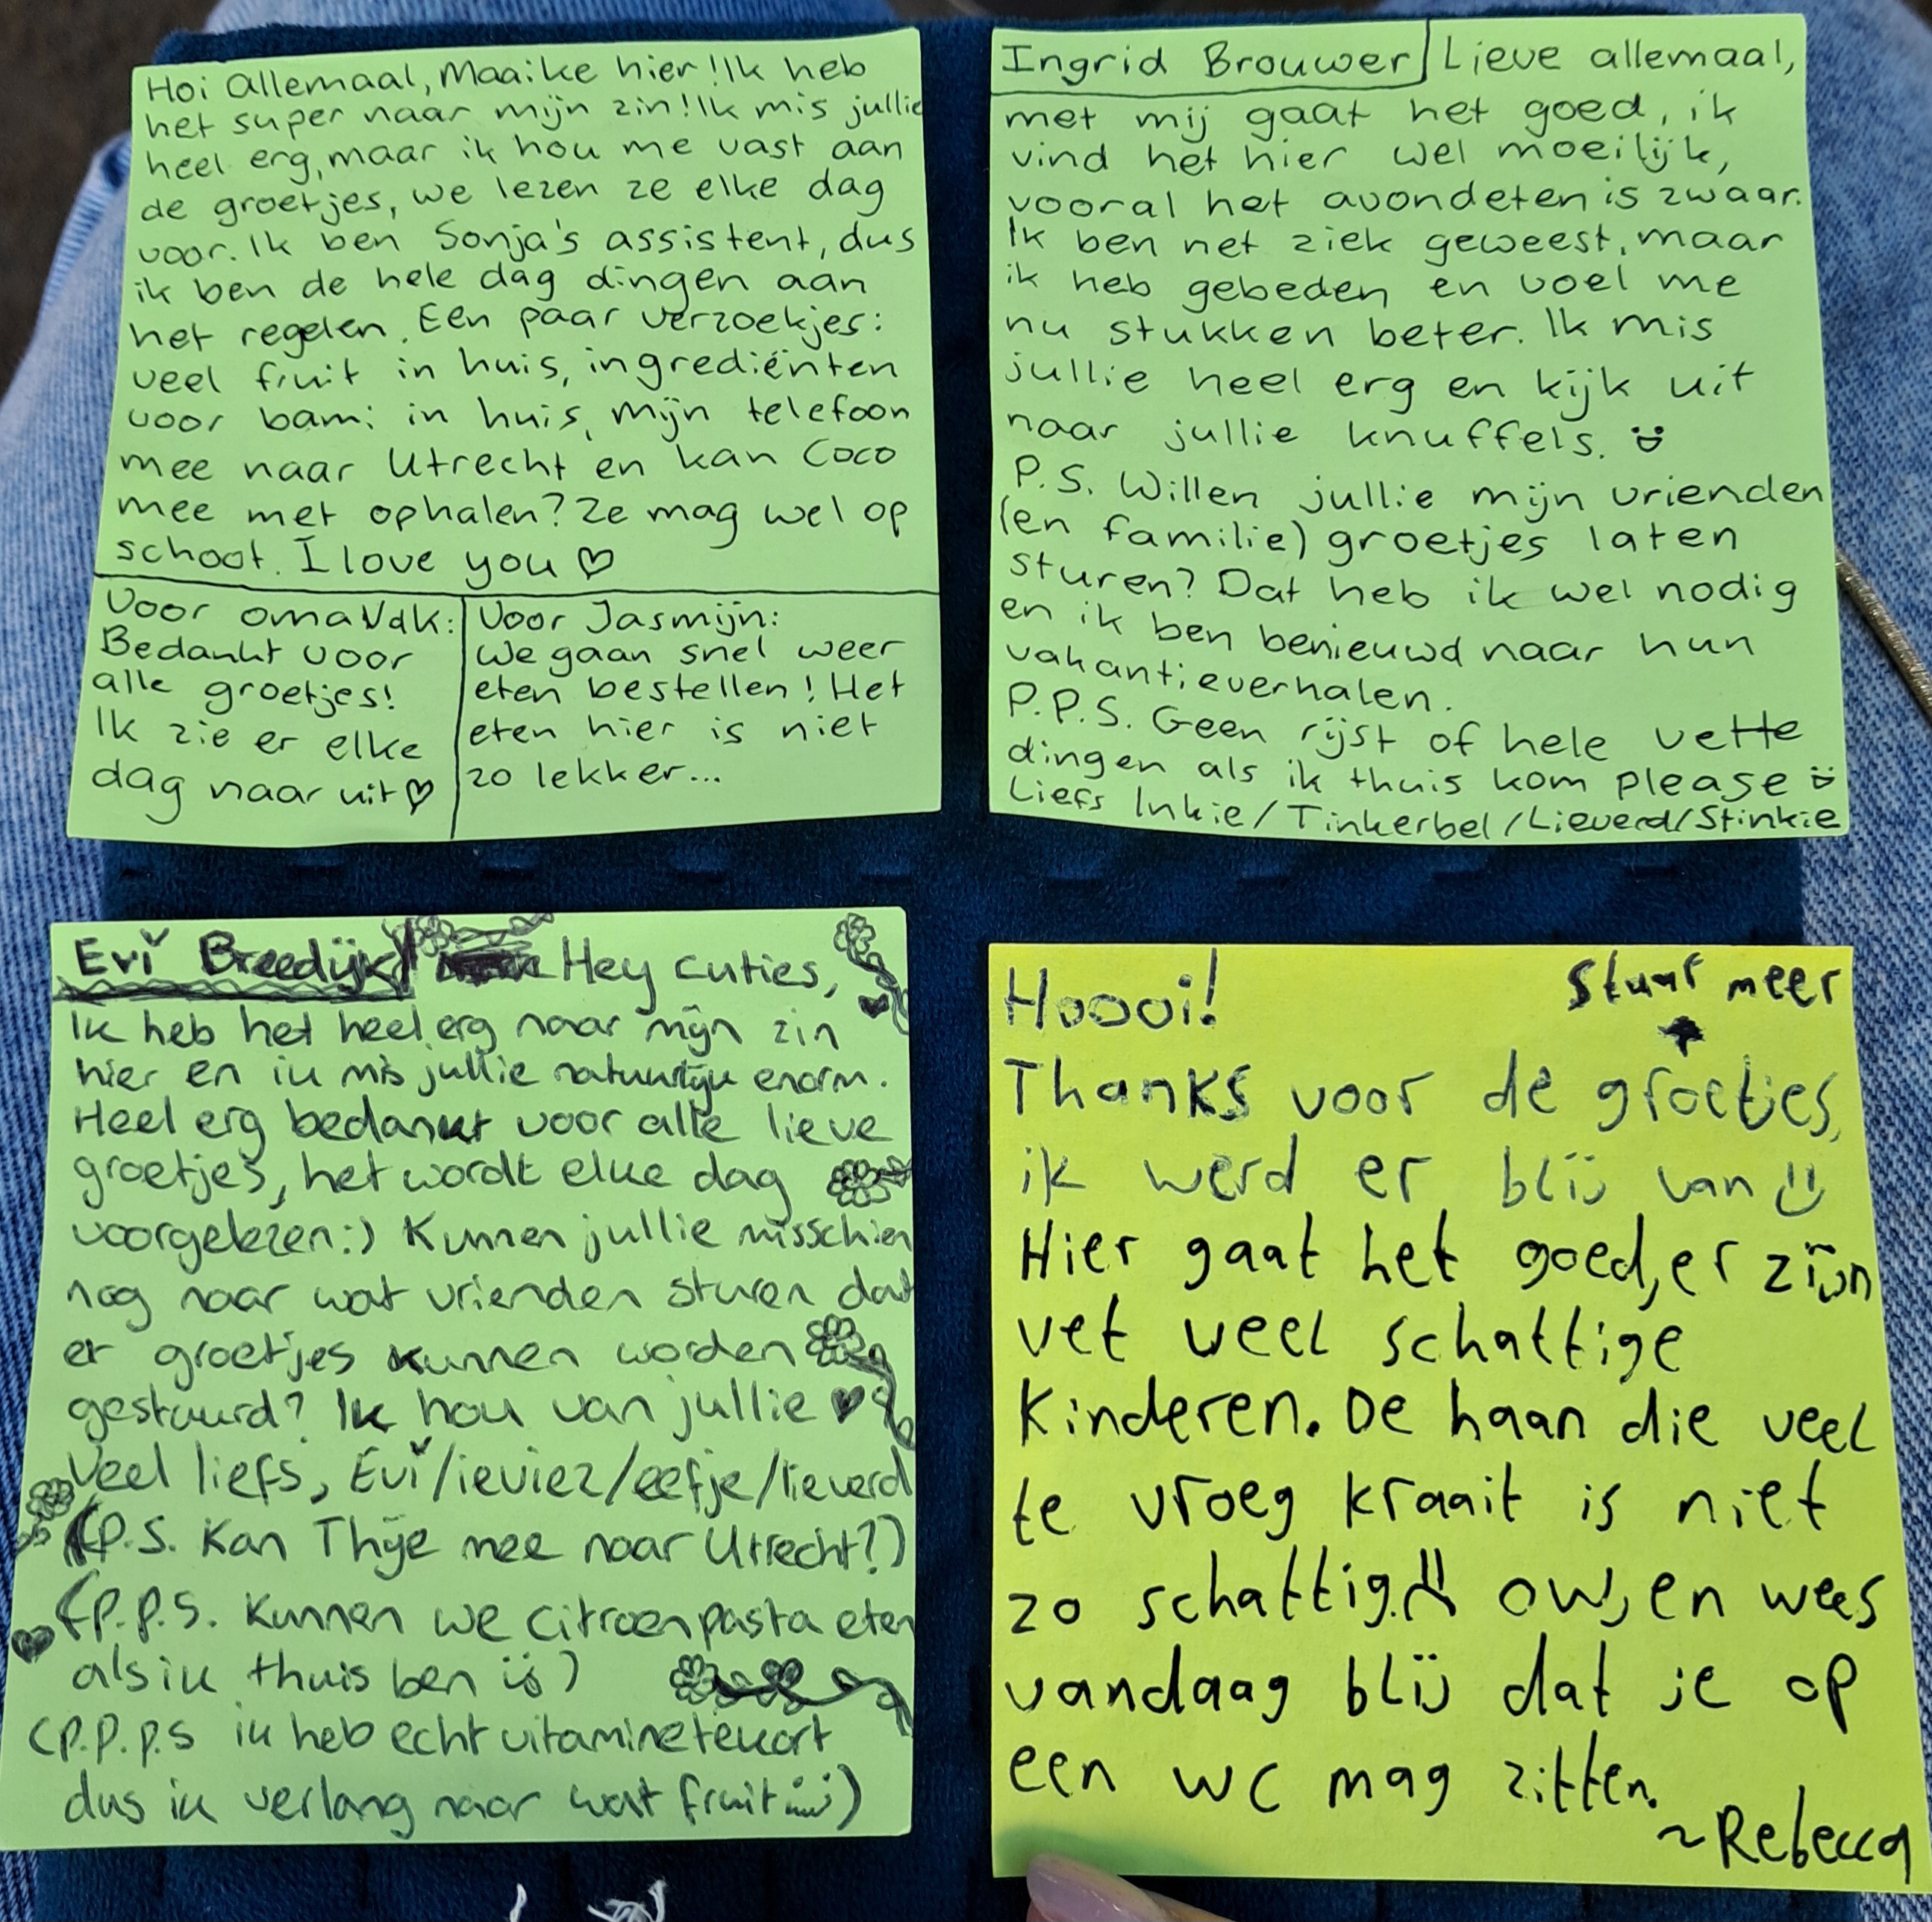 Hoi allemaal, Maaike hier! Ik heb
het super naar mijn zin! Ik mis jullie
heel erg, maar ik hou me vast aan
de groetjes, we lezen ze elke dag
voor. Ik ben Sonja's assistent, dus
ik ben de hele dag dingen aan
het regelen. Een paar verzoekjes:
veel fruit in huis, ingrediënten
voor bami in huis, mijn telefoon
mee naar Utrecht en kan Coco
mee met ophalen? Ze mag wel op
schoot. I love you ♡
Voor oma VdK:
Bedankt voor
alle groetjes!
Ik zie er elke
dag naar uit ♡
Voor Jasmijn:
We gaan snel weer
eten bestellen! Het
eten hier is niet
zo lekker...
Ingrid Brouwer Lieve allemaal,
met mij gaat het goed, ik
vind het hier wel moeilijk,
vooral het avondeten is zwaar.
Ik ben net ziek geweest, maar
ik heb gebeden en voel me
nu stukken beter. Ik mis
jullie heel erg en kijk uit
naar jullie knuffels. :)
P.S. Willen jullie mijn vrienden
(en familie) groetjes laten
sturen? Dat heb ik wel nodig
en ik ben benieuwd naar hun
vakantieverhalen.
P.P.S. Geen rijst of hele vette
dingen als ik thuis kom please :)
Liefs Inkie/Tinkerbel/Lieverd/Stinkie
Evi Breedijk Hey cuties,
Ik heb het heel erg naar mijn zin
hier en ik mis jullie natuurlijk enorm.
Heel erg bedankt voor alle lieve
groetjes, het wordt elke dag
voorgelezen:) Kunnen jullie misschien
nog naar wat vrienden sturen dat
er groetjes kunnen worden
gestuurd? Ik hou van jullie ♥
Veel liefs, Evi/ieviez/eefje/lieverd
(P.S. Kan Thije mee naar Utrecht?)
(P.P.S. Kunnen we citroenpasta eten
als ik thuis ben :))
(P.P.P.S ik heb echt vitaminetekort
dus ik verlang naar wat fruit :))
Hoooi!
Stuur meer
Thanks voor de groetjes,
ik werd er blij van :)
Hier gaat het goed, er zijn
vet veel schattige
kinderen. De haan die veel
te vroeg kraait is niet
zo schattig. :( ow, en wees
vandaag blij dat je op
een wc mag zitten.
~Rebecca